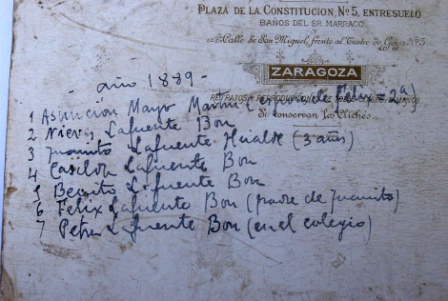 PLAZA DE LA CONSTITUCION, Nº 5, ENTRESUELO
BAÑOS DEL SR. MARRACO.
Calle de San Miguel, frente al Teatro de Goya Nº 5
ZARAGOZA
año 1889-
Si conservan los Clichés.
1 Asunción Mayor Martin (esposa de Felix = 2ª)
2 Nieves Lafuente Bon
3 Juanito Lafuente Hualde (3 años)
4 Casildn Lafuente Bon
5 Benito Lafuente Bon
6 Felix Lafuente Bon (padre de Juanito)
7 Lafuente Bon (en el colegio)